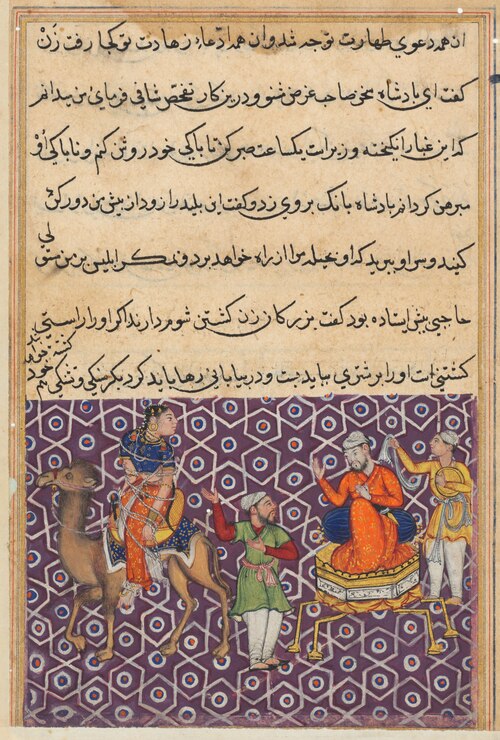 ان همه دعوي طهارت تو چه شد و ان همه ادعاء زهادت تو کجا رفت زن
کفت اي پادشاه سخن صاحب غرض مشنو و درین کار تفحص شافي فرماي من میدانم
که این غبار انکیخته وزیر است یکساعت صبر کن تا پاکي خود روشن کنم و ناپاکي او
مبرهن کردانم پادشاه بانک بر وي زد و کفت این پلید را زود از پیش من دور کن
کنید و سر او ببرید که او بحیله مرا از راه خواهد برد و مکر ابلیس بر من
حاجبي پیش استاده بود کفت بزرکان زن کشتن شوم دارند اکر او را راستي
کشتني است او را بر شتري بباید بست و در بیاباني رها باید کرد بکرسنکي و تشنکي هم خود
کشته خواهد شد